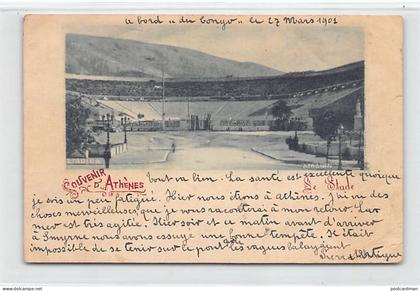 a bord "du Congo" le 27 Mars 1901
SOUVENIR D'ATHÈNES
Le Stade
tout va bien. La santé est excellente quoique
je sois un peu fatigué. Hier nous étions à athènes. J'ai vu des
choses merveilleuses que je vous raconterai à mon retour. La
mer est très agitée. Hier soir et ce matin avant d'arriver
à Smyrne nous avons essuyé une bonne tempête. Il était
impossible de se tenir sur le pont les vagues balayaient
Pierre